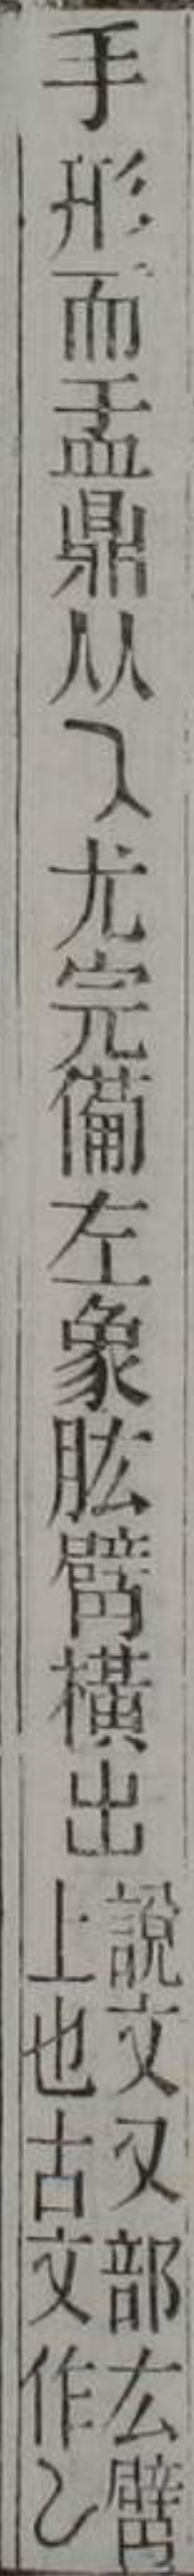 手形而盂鼎从㇈尤完備左象肱臂橫出
說文又部厷臂
上也古文作𠃋